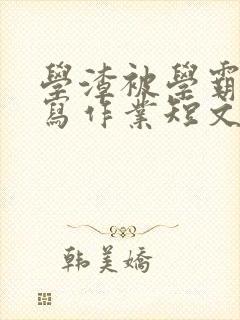 學渣被學霸
寫作業短文
韩美嬌